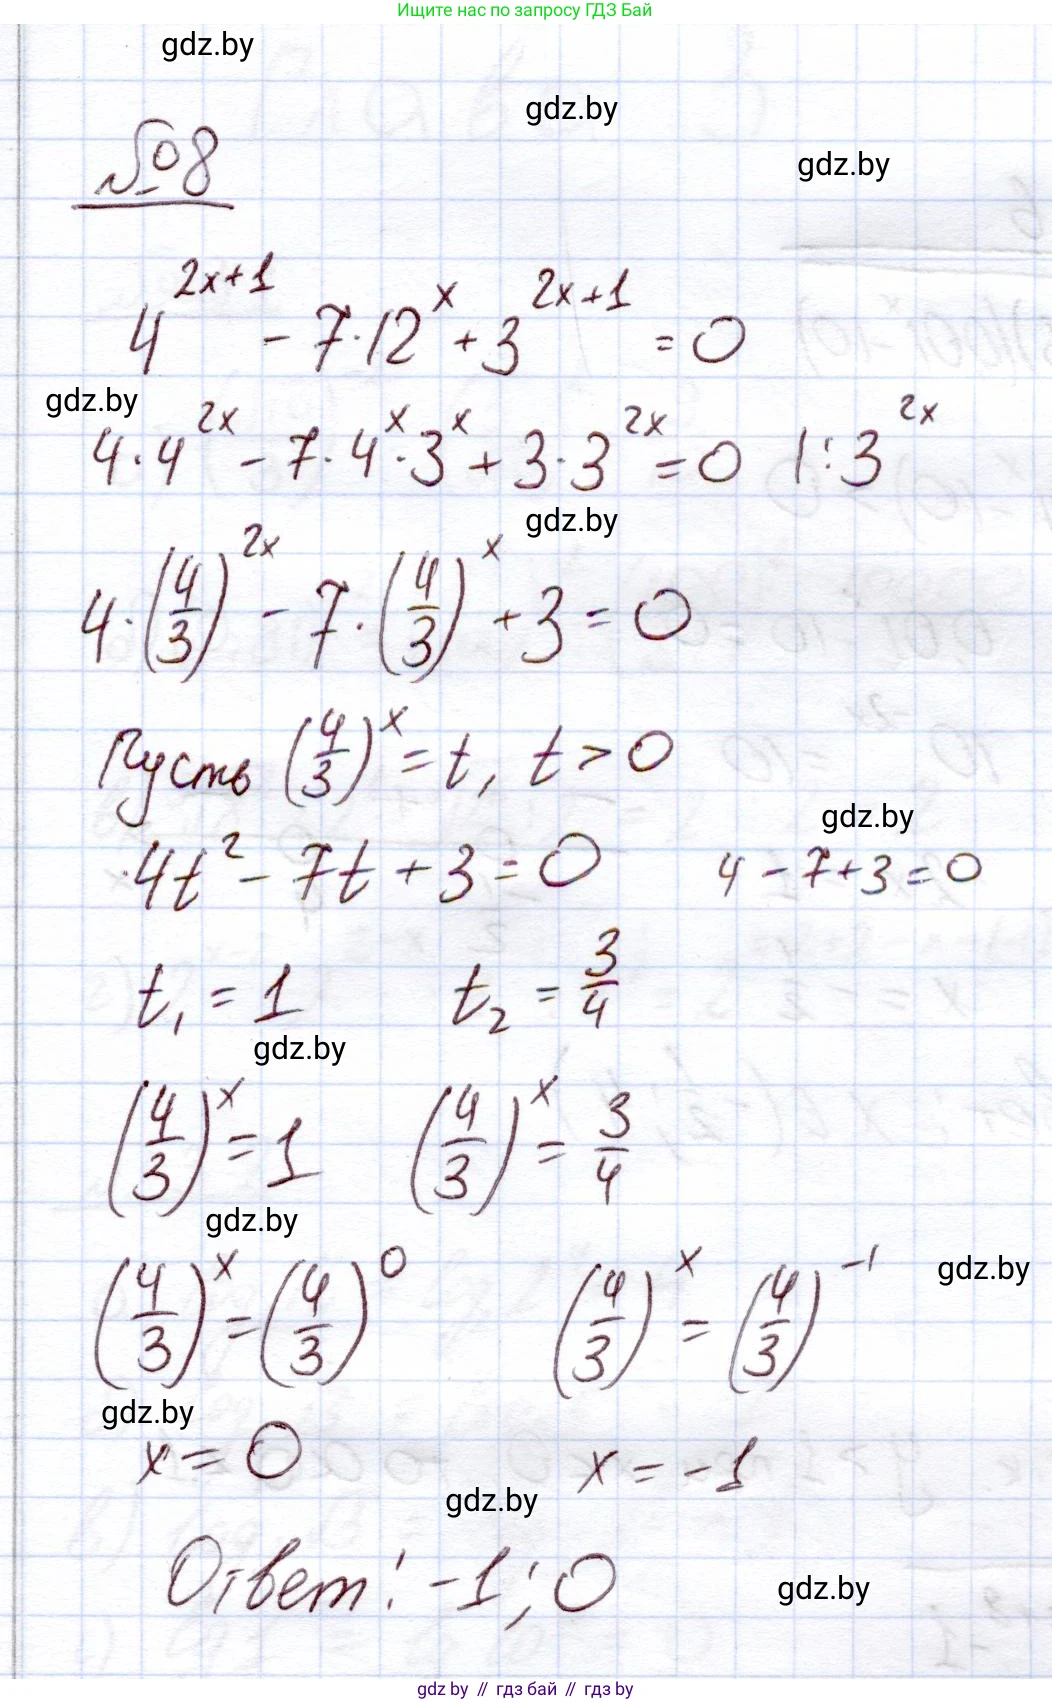 Ищите нас по запросу ГДЗ Бай
gdz.by
gdz.by
gdz.by
№8
4^{2x+1} - 7·12^x + 3^{2x+1} = 0
gdz.by
4·4^{2x} - 7·4^x·3^x + 3·3^{2x} = 0 |:3^{2x}
gdz.by
4·(4/3)^{2x} - 7·(4/3)^x + 3 = 0
Пусть (4/3)^x = t, t > 0
gdz.by
4t² - 7t + 3 = 0 4 - 7 + 3 = 0
t₁ = 1 t₂ = 3/4
gdz.by
(4/3)^x = 1 (4/3)^x = 3/4
gdz.by
(4/3)^x = (4/3)^0 (4/3)^x = (4/3)^{-1}
gdz.by
gdz.by
x = 0 x = -1
gdz.by
Ответ: -1; 0
gdz.by
gdz by // гдз бай // гдз by